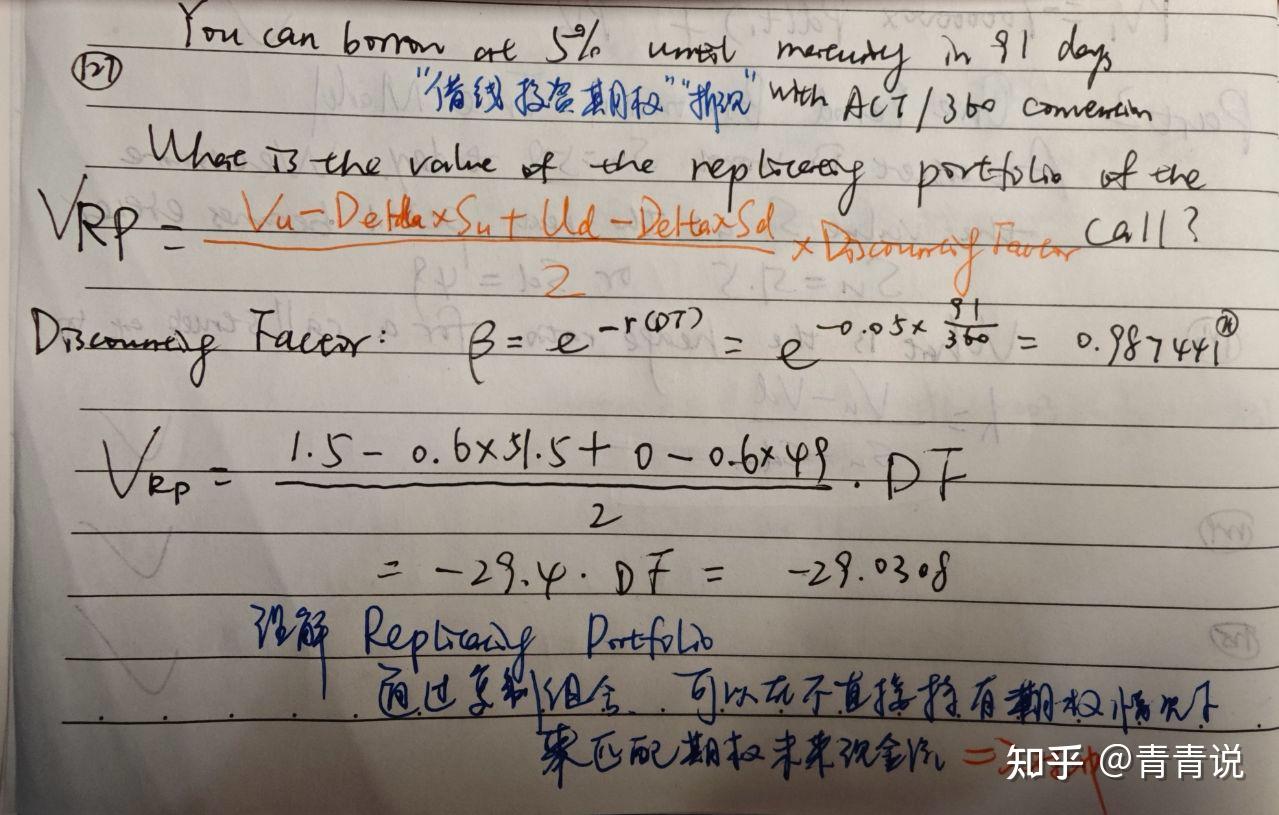 You can borrow at 5% until maturity in 91 days
127 "借线投资期权" "折现" with ACT/360 convention
What is the value of the replicating portfolio of the call?
VRP = (Vu - Delta × Su + Ud - Delta × Sd) / 2 × Discounting Factor
Discounting Factor: β = e^{-r(DT)} = e^{-0.05 × 91/360} = 0.987441
VRP = (1.5 - 0.6×51.5 + 0 - 0.6×49) / 2 · DF
= -29.4 · DF = -29.0308
理解 Replicating Portfolio
通过复制组合 可以在不直接持有期权情况下
来匹配期权未来现金流 =
知乎 @青青说